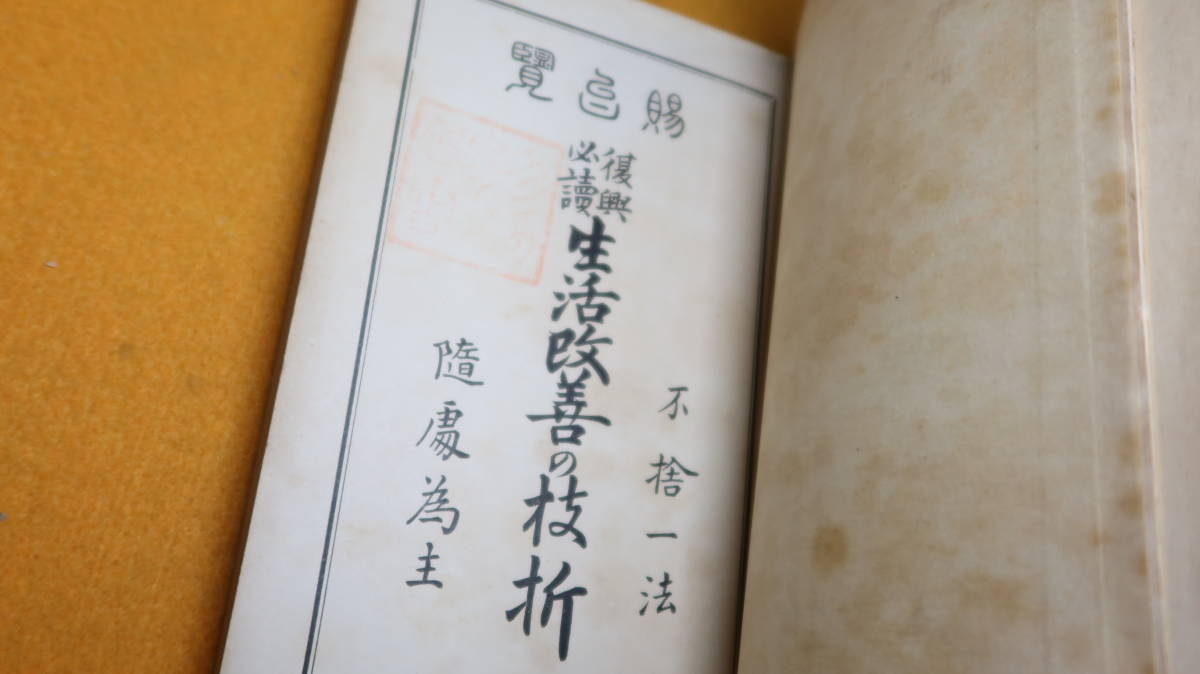 賜台覽
復興
必讀
生活改善の枝折
不捨一法
隨處為主